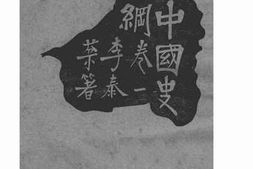 中國史
綱卷一
李泰
棻著